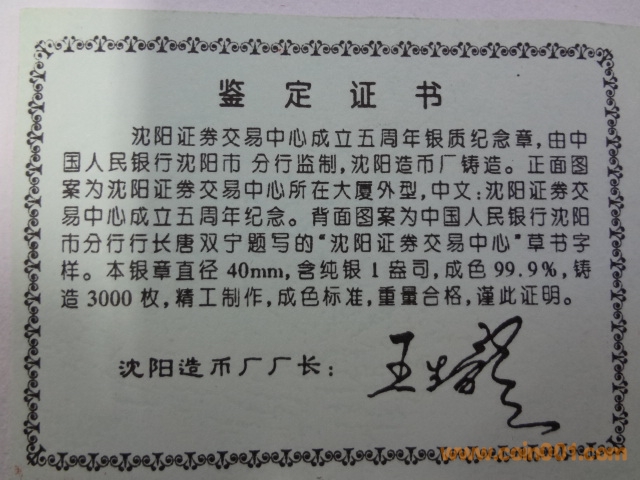 鉴定证书
沈阳证券交易中心成立五周年银质纪念章,由中
国人民银行沈阳市 分行监制,沈阳造币厂铸造。正面图
案为沈阳证券交易中心所在大厦外型,中文:沈阳证券交
易中心成立五周年纪念。背面图案为中国人民银行沈阳
市分行行长唐双宁题写的“沈阳证券交易中心”草书字
样。本银章直径40mm,含纯银1盎司,成色99.9%,铸
造3000枚,精工制作,成色标准,重量合格,谨此证明。
沈阳造币厂厂长: